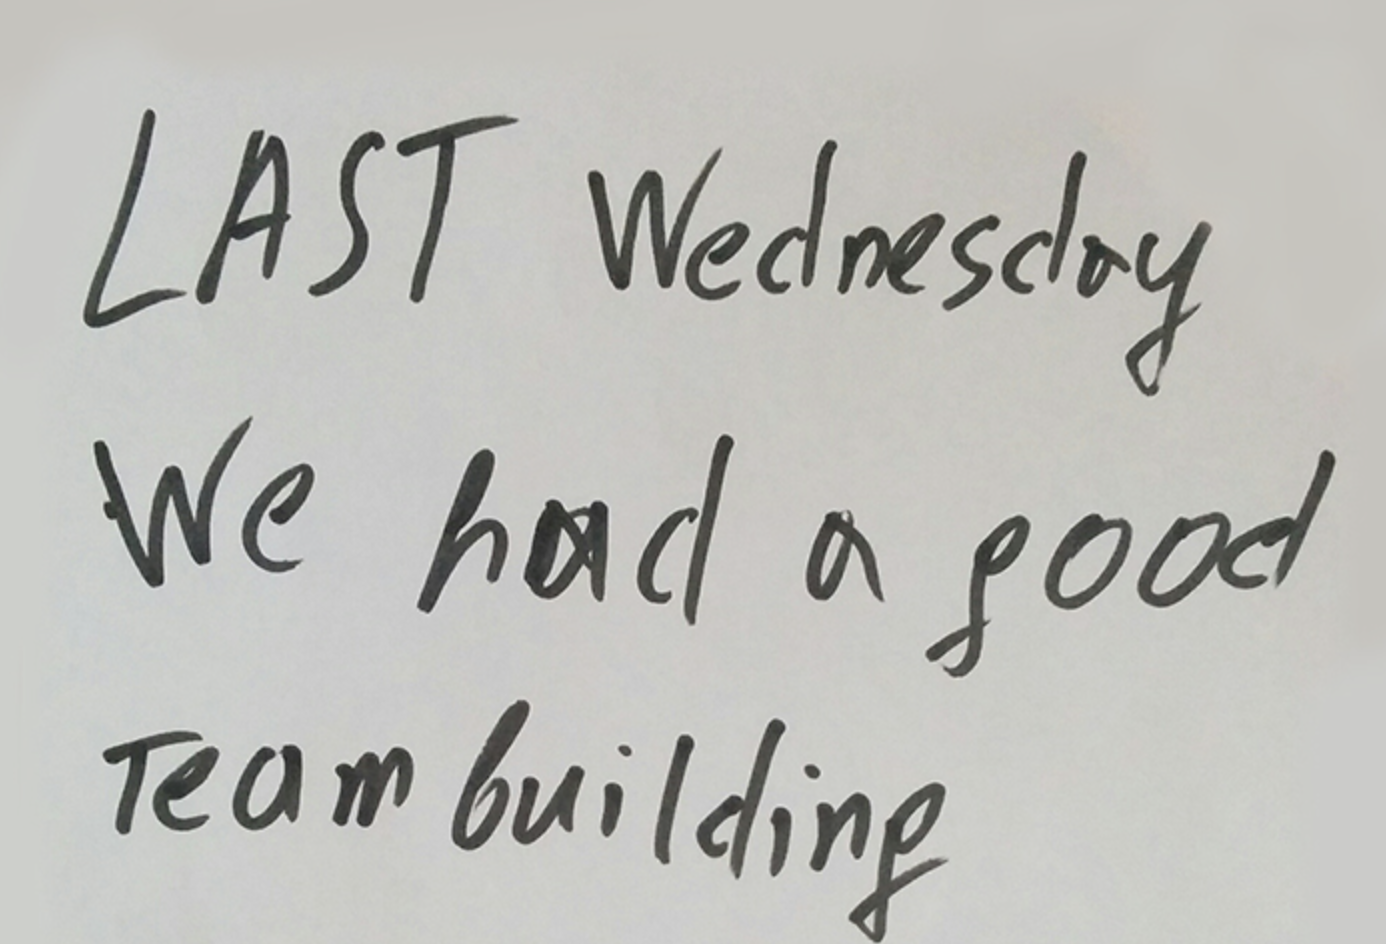 LAST Wednesday
We had a good
Team building